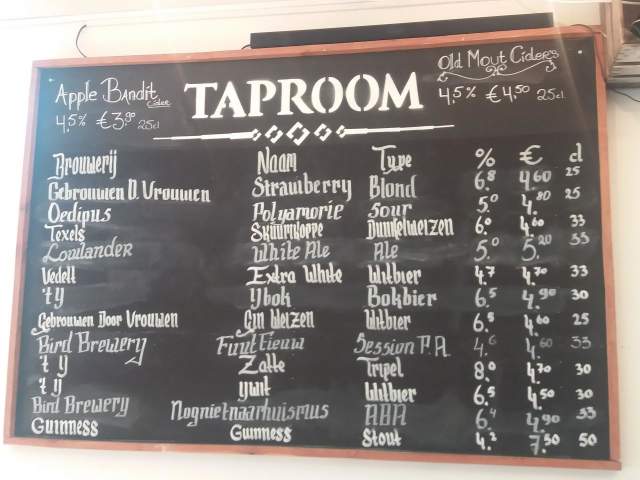 Apple Bandit Cider
4,5% €3,90 25cl
TAPROOM
Old Mout Ciders
4,5% €4,50 25cl
Brouwerij Naam Type % € cl
Gebrouwen D. Vrouwen Strawberry Blond 6.8 4.60 25
Oedipus Polyamorie Sour 5.0 4.80 25
Texels Skuumkoppe Dunkelweizen 6.0 4.60 33
Lowlander White Ale Ale 5.0 5.20 33
Vedett Extra White Witbier 4.7 4.70 33
't ij Ijbok Bokbier 6.5 4.90 30
Gebrouwen Door Vrouwen Gin Weizen Witbier 6.5 4.60 25
Bird Brewery Fuut Fieuw Session P.A. 4.6 4.60 33
't ij Zatte Tripel 8.0 4.70 30
't ij Ijwit Witbier 6.5 4.50 30
Bird Brewery Nognietnaarhuismus ABA 6.4 4.90 33
Guinness Guinness Stout 4.2 7.50 50